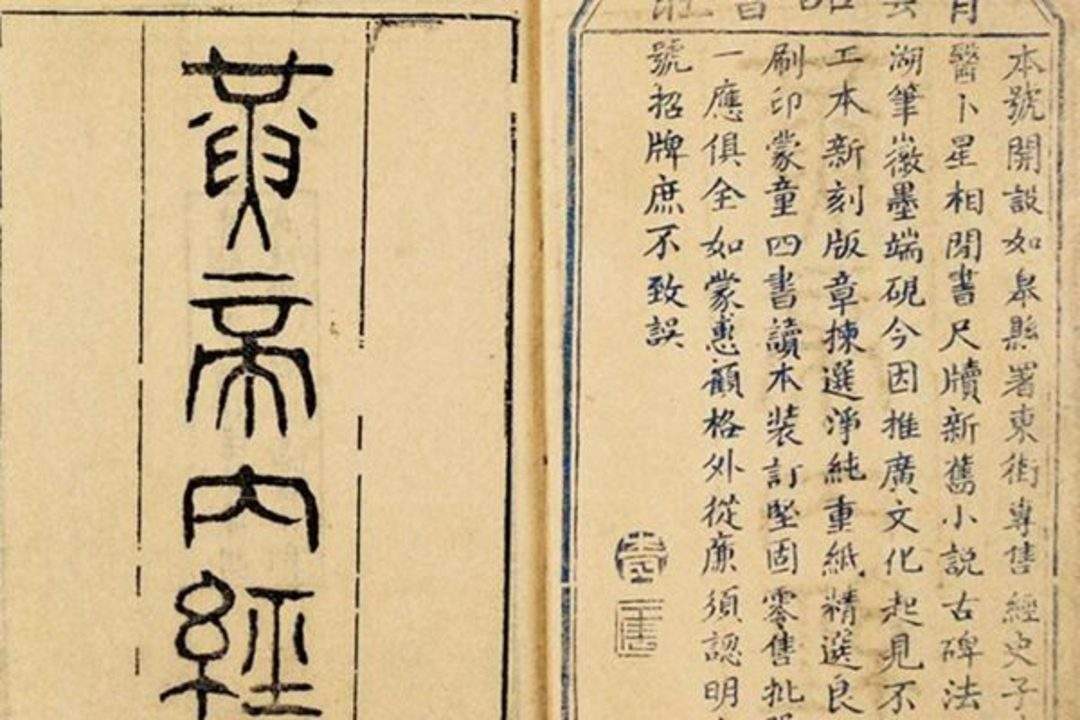 本號開設如皋縣署東街專售經史子
醫卜星相閒書尺牘新舊小説古碑法
湖筆徽墨端硯今因推廣文化起見不
工本新刻版章揀選淨純重紙精選良
刷印蒙童四書讀本裝訂堅固零售批
一應俱全如蒙惠顧格外從廉須認明
號招牌庶不致誤
黃帝內經